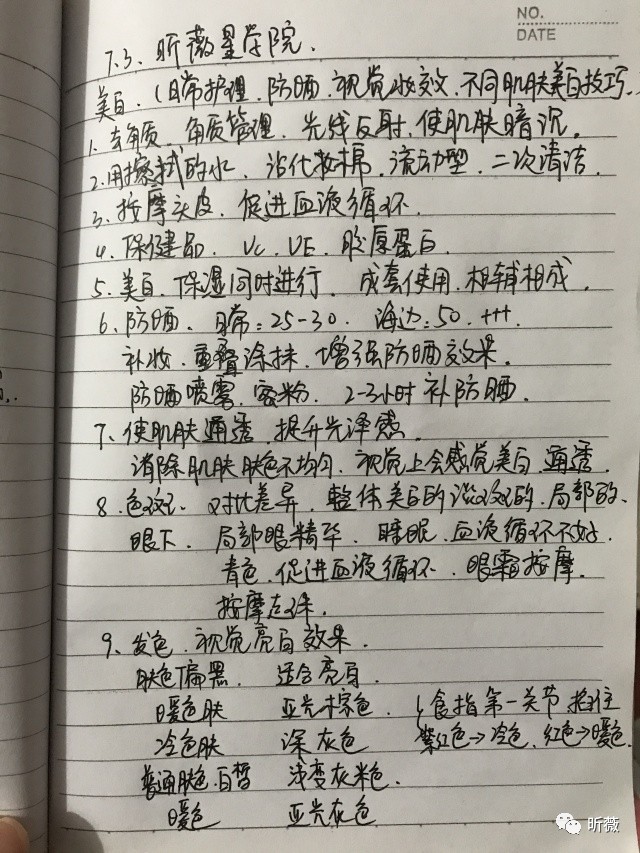 NO.
DATE
7.3、昕薇星学院.
美白.（日常护理.防晒.视觉收效.不同肌肤美白技巧.
1.去角质、角质管理、光线反射.使肌肤暗沉.
2.用擦拭的水、沾化妆棉、流动型、二次清洁.
3、按摩头皮、促进血液循环.
4、保健品、VC、VE、胶原蛋白.
5、美白、保湿同时进行、成套使用、相辅相成.
6、防晒、日常:25-30、海边:50、+++.
补妆、重叠涂抹、增强防晒效果.
防晒喷雾、蜜粉、2-3小时补防晒.
7、使肌肤通透、提升光泽感.
消除肌肤肤色不均匀、视觉上会感觉美白、通透.
8、色斑、对比差异、整体美白的淡斑的、局部的.
眼下、局部眼精华、睡眠、血液循环不好.
青色、促进血液循环、眼霜按摩.
按摩
9、发色、视觉亮白效果.
肤色偏黑、适合亮白.
暖色肤 亚光棕色.（食指第一关节 掐住
冷色肤 深灰色 紫红色→冷色、红色→暖色.
普通肤色、白皙 浅变灰米色.
暖色 亚光灰色
昕薇